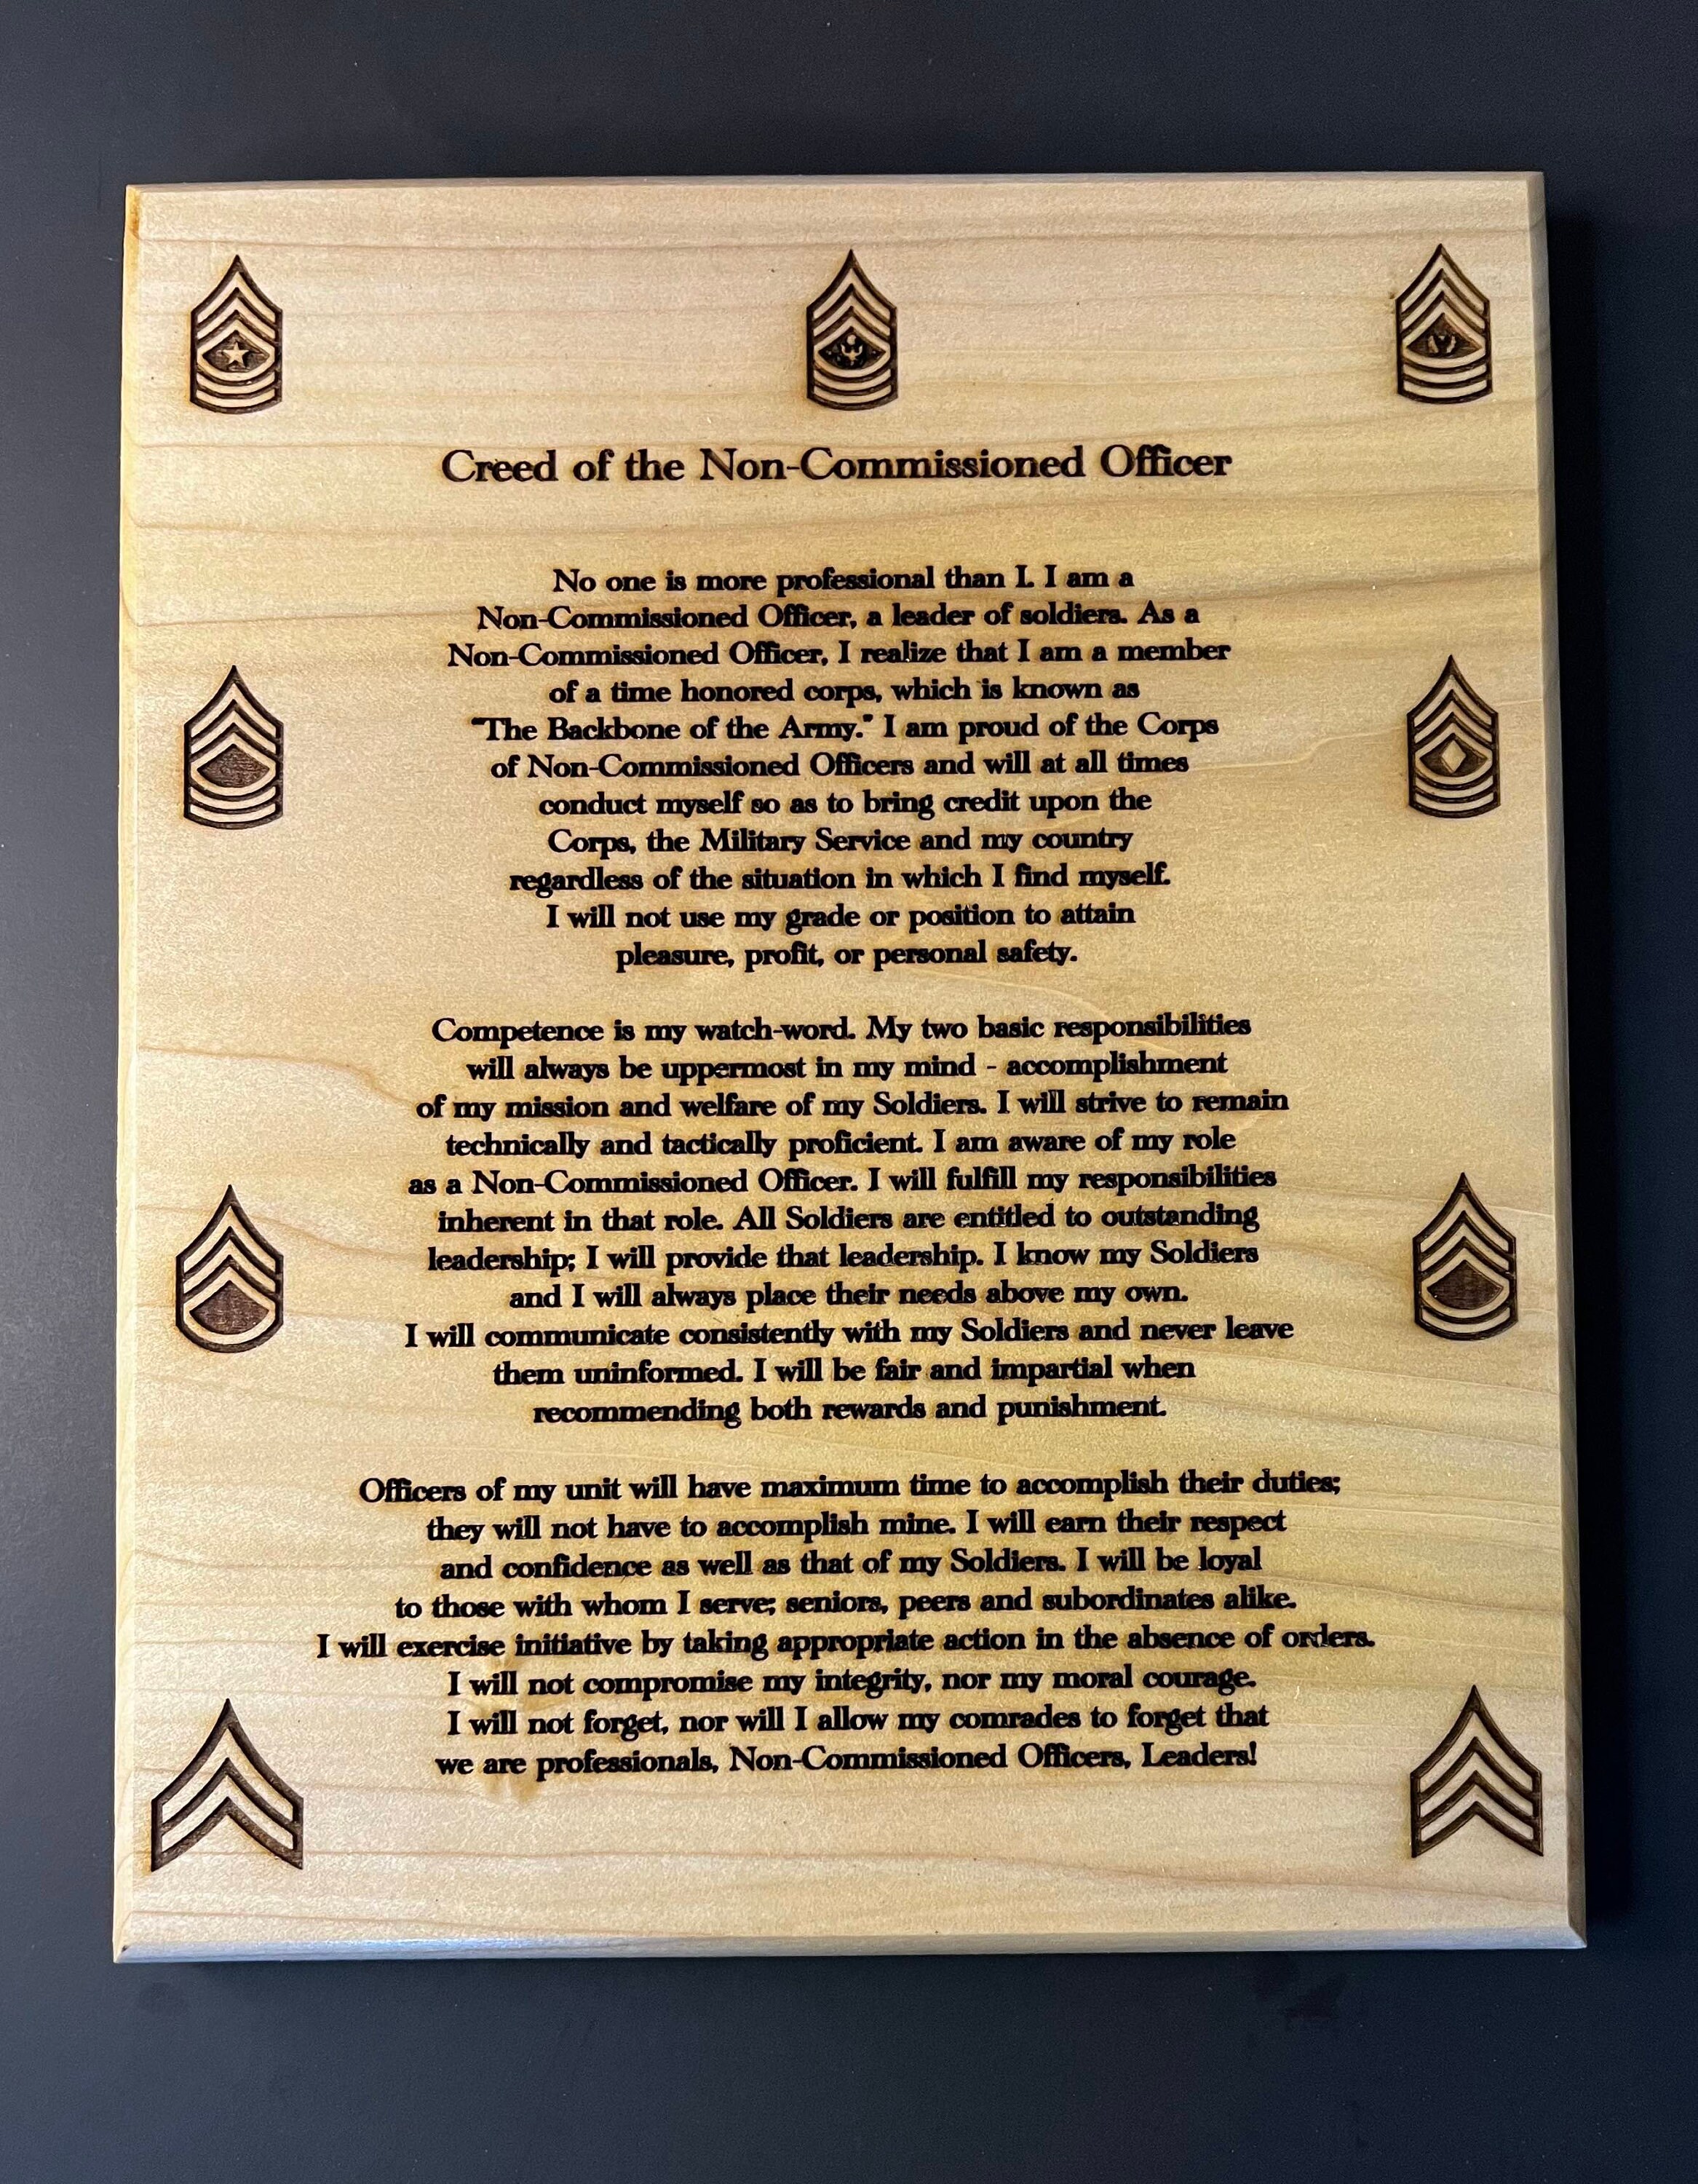 Creed of the Non-Commissioned Officer
No one is more professional than I. I am a
Non-Commissioned Officer, a leader of soldiers. As a
Non-Commissioned Officer, I realize that I am a member
of a time honored corps, which is known as
"The Backbone of the Army." I am proud of the Corps
of Non-Commissioned Officers and will at all times
conduct myself so as to bring credit upon the
Corps, the Military Service and my country
regardless of the situation in which I find myself.
I will not use my grade or position to attain
pleasure, profit, or personal safety.
Competence is my watch-word. My two basic responsibilities
will always be uppermost in my mind - accomplishment
of my mission and welfare of my Soldiers. I will strive to remain
technically and tactically proficient. I am aware of my role
as a Non-Commissioned Officer. I will fulfill my responsibilities
inherent in that role. All Soldiers are entitled to outstanding
leadership; I will provide that leadership. I know my Soldiers
and I will always place their needs above my own.
I will communicate consistently with my Soldiers and never leave
them uninformed. I will be fair and impartial when
recommending both rewards and punishment.
Officers of my unit will have maximum time to accomplish their duties;
they will not have to accomplish mine. I will earn their respect
and confidence as well as that of my Soldiers. I will be loyal
to those with whom I serve; seniors, peers and subordinates alike.
I will exercise initiative by taking appropriate action in the absence of orders.
I will not compromise my integrity, nor my moral courage.
I will not forget, nor will I allow my comrades to forget that
we are professionals, Non-Commissioned Officers, Leaders!